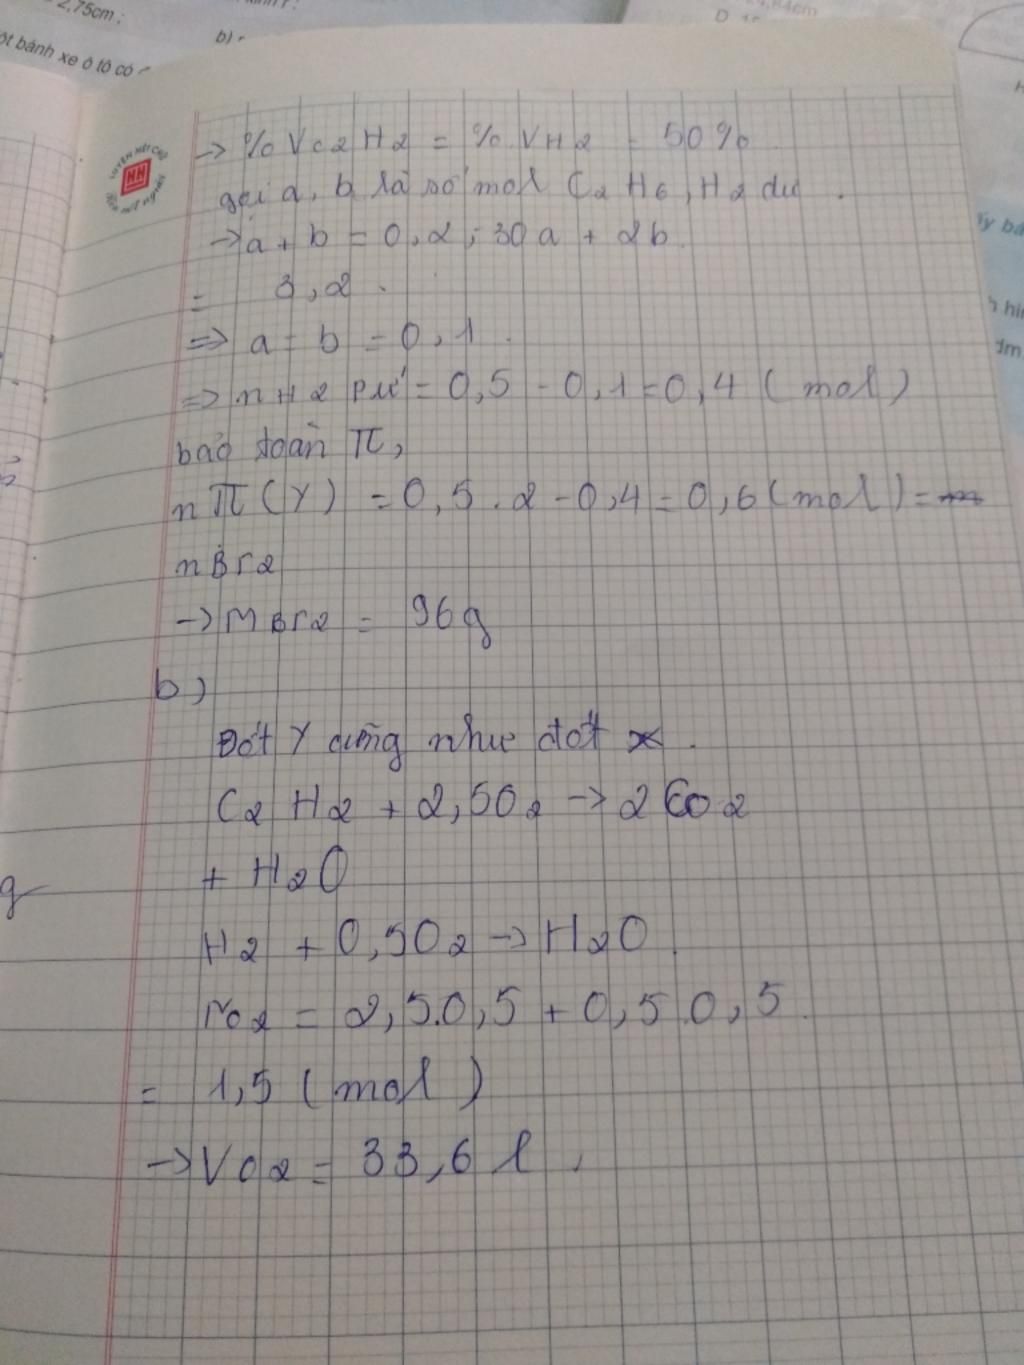 2,75cm;
b)
ột bánh xe ô tô có
D
LUYỆN NÉT CHỮ
HN
→ % VC2H2 = % VH2 = 50%
gọi a, b là số mol C2H6, H2 dư.
→ a + b = 0,2; 30a + 2b
= 3,2.
=> a = b = 0,1.
=> nH2 pứ = 0,5 - 0,1 = 0,4 (mol)
bảo toàn π,
nπ(Y) = 0,5.2 - 0,4 = 0,6 (mol) =
nBr2
→ MBr2 = 96g
b)
Đốt Y cũng như đốt X.
C2H2 + 2,5O2 → 2CO2
+ H2O
H2 + 0,5O2 → H2O.
nO2 = 2,5.0,5 + 0,5.0,5
= 1,5 (mol)
→ VO2 = 33,6 l.
g